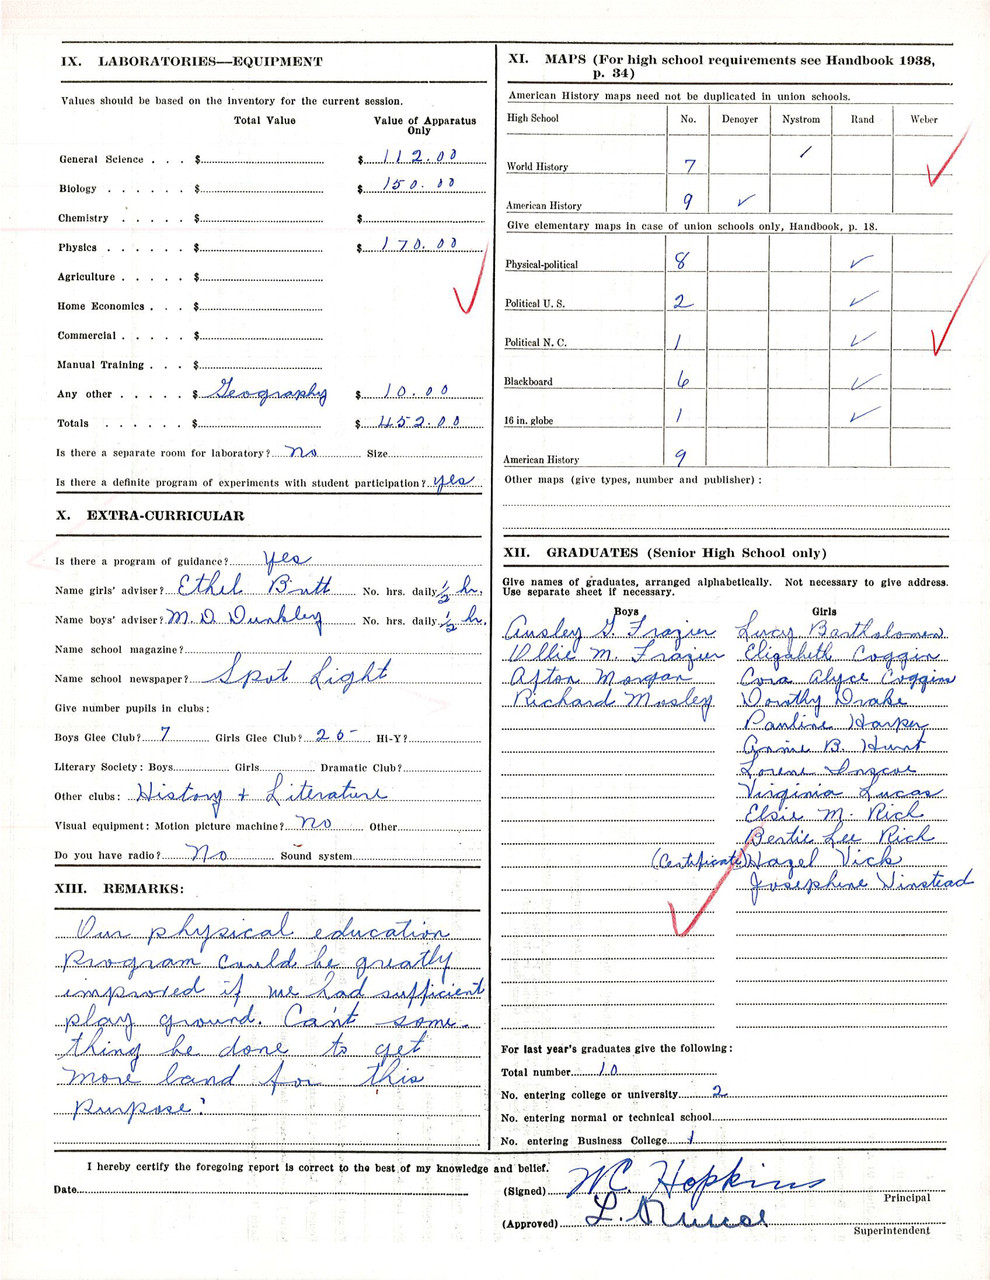 IX. LABORATORIES—EQUIPMENT
Values should be based on the inventory for the current session.
Total Value Value of Apparatus Only
General Science . . . $ $ 112.00
Biology . . . . . . $ $ 150.00
Chemistry . . . . . $ $
Physics . . . . . . $ $ 170.00
Agriculture . . . . . $
Home Economics . . . $
Commercial . . . . . $
Manual Training . . . $
Any other . . . . . $ Geography $ 10.00
Totals . . . . . . $ $ 452.00
Is there a separate room for laboratory? no Size
Is there a definite program of experiments with student participation? yes
X. EXTRA-CURRICULAR
Is there a program of guidance? yes
Name girls' adviser? Ethel Britt No. hrs. daily ½ hr.
Name boys' adviser? M. D. Dunkley No. hrs. daily ½ hr.
Name school magazine?
Name school newspaper? Spot Light
Give number pupils in clubs:
Boys Glee Club? 7 Girls Glee Club? 25 Hi-Y?
Literary Society: Boys Girls Dramatic Club?
Other clubs: History + Literature
Visual equipment: Motion picture machine? no Other
Do you have radio? No Sound system
XIII. REMARKS:
Our physical education
program could be greatly
improved if we had sufficient
play ground. Can't some-
thing be done to get
more land for this
purpose?
XI. MAPS (For high school requirements see Handbook 1938,
p. 34)
American History maps need not be duplicated in union schools.
High School No. Denoyer Nystrom Rand Weber
World History 7 /
American History 9 ✓
Give elementary maps in case of union schools only, Handbook, p. 18.
Physical-political 8 ✓
Political U. S. 2 ✓
Political N. C. 1 ✓
Blackboard 6 ✓
16 in. globe 1 ✓
American History 9
Other maps (give types, number and publisher) :
XII. GRADUATES (Senior High School only)
Give names of graduates, arranged alphabetically. Not necessary to give address.
Use separate sheet if necessary.
Boys Girls
Ausley G. Frazier Lucy Bartholomew
Ollie M. Frazier Elizabeth Coggin
Afton Morgan Cora Alyce Coggins
Richard Mosley Dorothy Drake
Pauline Harper
Annie B. Hunt
Lorene Inscoe
Virginia Lucas
Elsie M. Rich
Bertie Lee Rich
(Certificate) Hazel Vick
Josephine Winstead
For last year's graduates give the following:
Total number 10
No. entering college or university 2
No. entering normal or technical school
No. entering Business College 1
I hereby certify the foregoing report is correct to the best of my knowledge and belief.
Date
(Signed) W C Hopkins
Principal
(Approved) L.
Superintendent